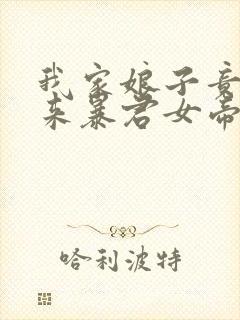 我家娘子竟
来暴君女帝
哈利波特